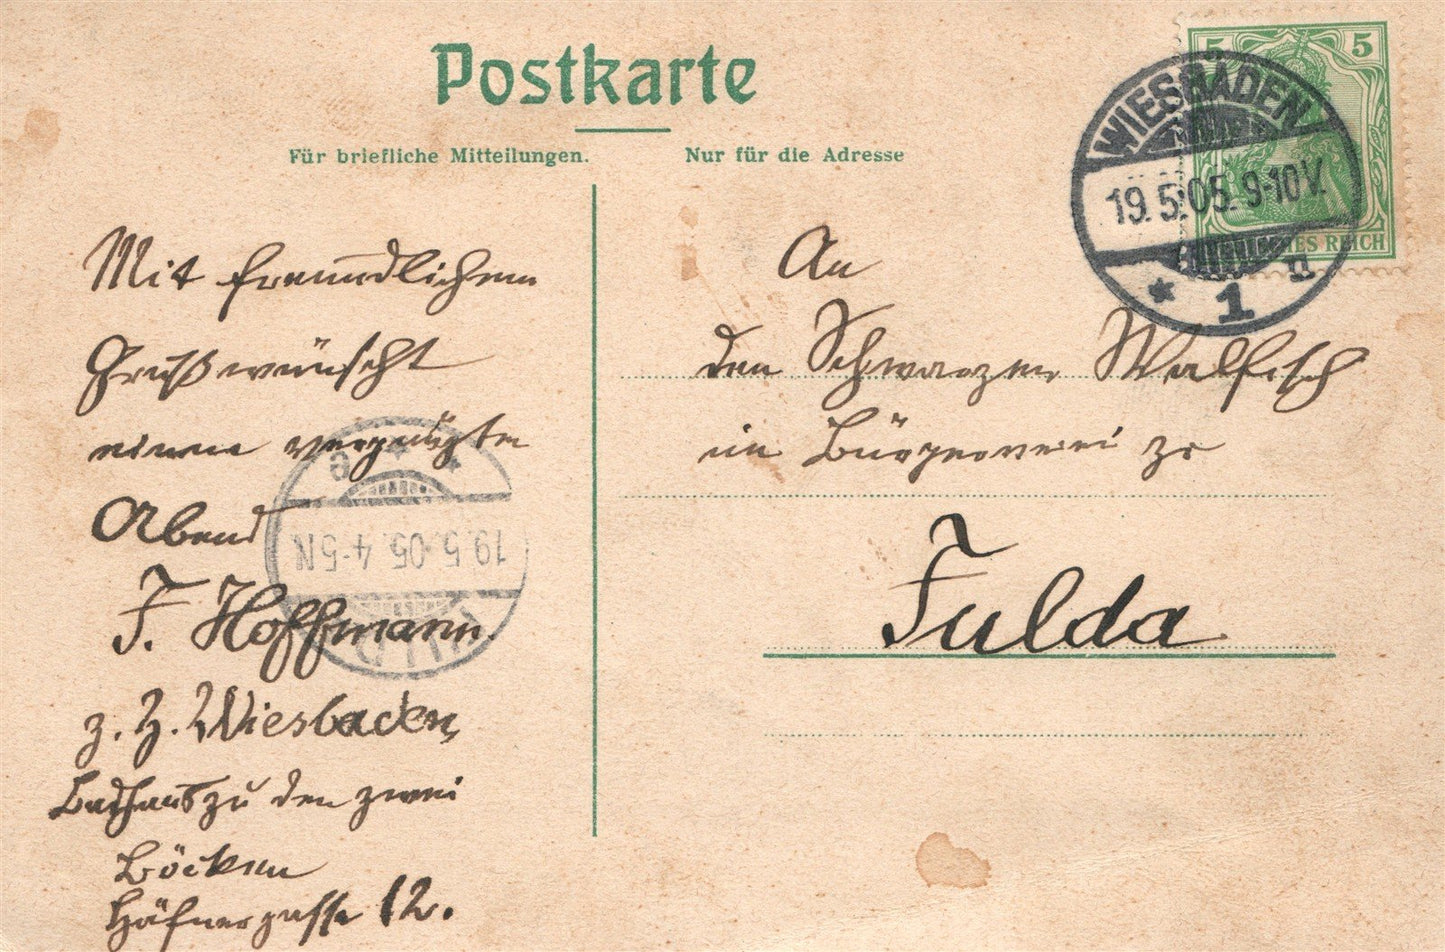 Postkarte
Für briefliche Mitteilungen.
Nur für die Adresse
5 5
DEUTSCHES REICH
WIESBADEN
19.5.05. 9-10V.
* 1 n
Mit freundlichem
Gruß wünscht
einen vergnügten
Abend
F. Hoffmann.
z. Z. Wiesbaden,
Badhaus zu den zwei
Böcken
Häfnergasse 12.
An
den Schwarzen Walfisch
im Bürgerverein zu
Fulda
FULDA
19.5.05. 4-5N
* * a